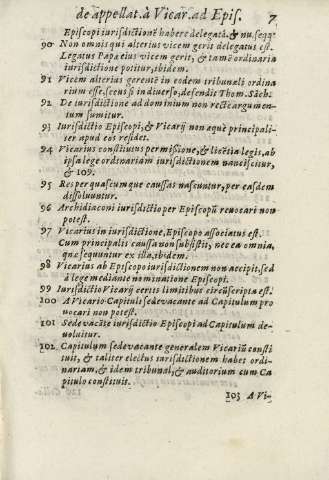 de appellat. à Vicar. ad Epis. 7
Episcopi iurisdictionē habere delegatā. & nu. seqq
90 Non omnis qui alterius vicem gerit delegatus est.
Legatus Papæ eius vicem gerit, & tamē ordinaria
iurisdictione potitur, ibidem.
91 Vicem alterius gerentē in eodem tribunali ordina
rium esse, secus si in diuerso, defendit Thom. Săch.
92 De iurisdictione ad dominium non recte argumen
tum sumitur.
93 Iurisdictio Episcopi, & Vicarij non aquè principali-
ter apud eos residet.
94 Vicarius constitutus permissione, & licētia legis, ab
ipsa lege ordinariam iurisdictionem nanciscitur,
& 109.
95 Res per quascumque caussas nascuntur, per easdem
dissoluuntur.
96 Archidiaconi iurisdictio per Episcopū reuocari non
potest.
97 Vicarius in iurisdictione, Episcopo associatus est.
Cum principalis caussa non subsistit, nec ea omnia,
quæ sequuntur ex illa, ibidem.
98 Vicarius ab Episcopo iurisdictionem non accipit, sed
à lege mediante nominatione Episcopi.
99 Iurisdictio Vicarij certis limitibus circūscripta est.
100 A Vicario Capituli sede vacante ad Capitulum pro
uocari non potest.
101 Sede vacāte iurisdictio Episcopi ad Capitulum de-
uoluitur.
102 Capitulum sede vacante generalem Vicariū consti
tuit, & taliter electus iurisdictionem habet ordi-
nariam, & idem tribunal, & auditorium cum Ca
pitulo constituit.
103 A Vi-